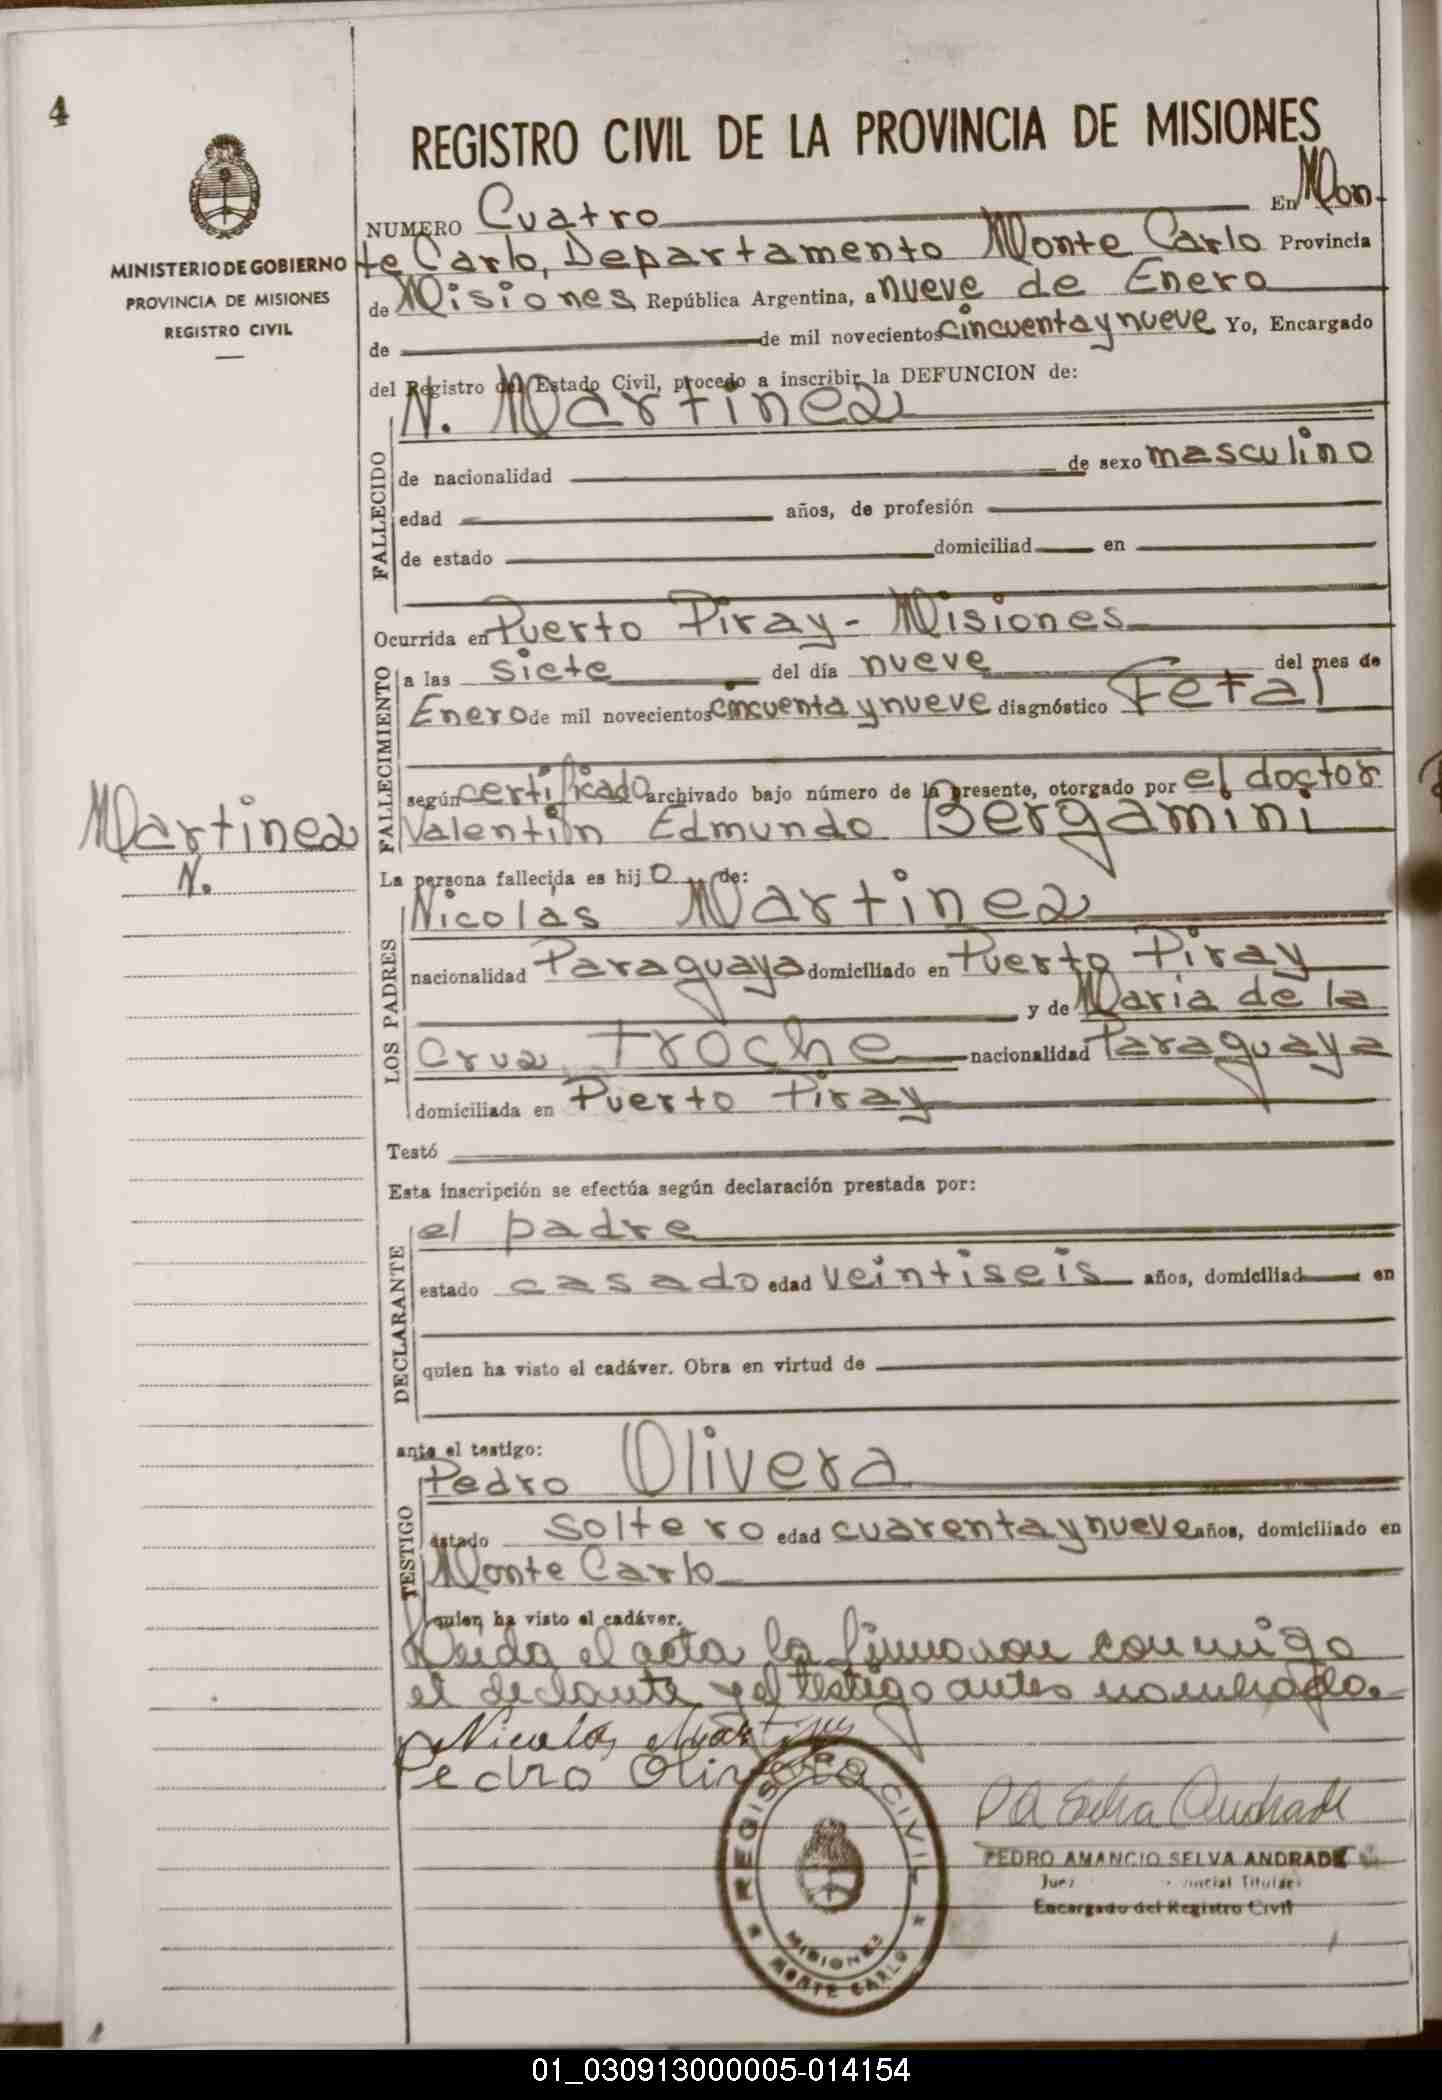 4
REGISTRO CIVIL DE LA PROVINCIA DE MISIONES
MINISTERIO DE GOBIERNO
PROVINCIA DE MISIONES
REGISTRO CIVIL
NUMERO Cuatro En Mon-
te Carlo, Departamento Monte Carlo Provincia
de Misiones República Argentina, a nueve de Enero
de de mil novecientos cincuenta y nueve Yo, Encargado
del Registro del Estado Civil, procedo a inscribir la DEFUNCION de:
N. Martinez
FALLECIDO
de nacionalidad de sexo masculino
edad años, de profesión
de estado domiciliad en
Ocurrida en Puerto Piray - Misiones
FALLECIMIENTO
a las siete del día nueve del mes de
Enero de mil novecientos cincuenta y nueve diagnóstico Fetal
según certificado archivado bajo número de la presente, otorgado por el doctor
Valentín Edmundo Bergamini
Martinez
N.
La persona fallecida es hijo de:
LOS PADRES
Nicolás Martinez
nacionalidad Paraguaya domiciliado en Puerto Piray
y de Maria de la
Cruz Troche nacionalidad Paraguaya
domiciliada en Puerto Piray
Testó
Esta inscripción se efectúa según declaración prestada por:
DECLARANTE
el padre
estado casado edad veintiseis años, domiciliad en
quien ha visto el cadáver. Obra en virtud de
ante el testigo:
TESTIGO
Pedro Olivera
estado soltero edad cuarenta y nueve años, domiciliado en
Monte Carlo
quien ha visto el cadáver.
Leida el acta la firmaron conmigo
el declante y el testigo antes nombrado.
Nicolas Martinez
Pedro Olivera
REGISTRO CIVIL
MISIONES
MONTE CARLO
P A Selva Andrade
PEDRO AMANCIO SELVA ANDRADE
Juez Titular
Encargado del Registro Civil
01_030913000005-014154